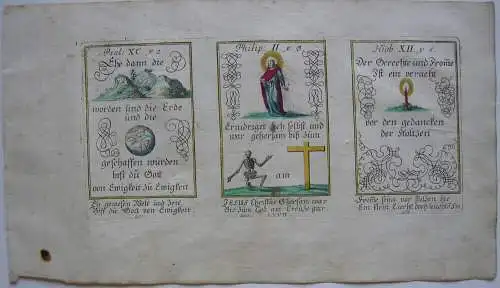 Psal. XC. v 2
Ehe dann die
worden und die Erde
und die
geschaffen wurden
bist du Gott
von Ewigkeit zu Ewigkeit
Eh gewesen Welt und
Bist du Gott von Ewigkeit.
Philip. II v 8
Erndriget sich selbst und
war gehorsam biß zum
am
JESUS Christus Gehorsam war
Bis zum Tod am Creutze gar
Hiob. XII. v
Der Gerechte und Fromme
Ist ein veracht
vor den gedancken
der Stoltzen
Fromme seyn vor stoltzen die
Ein klein Liecht doch